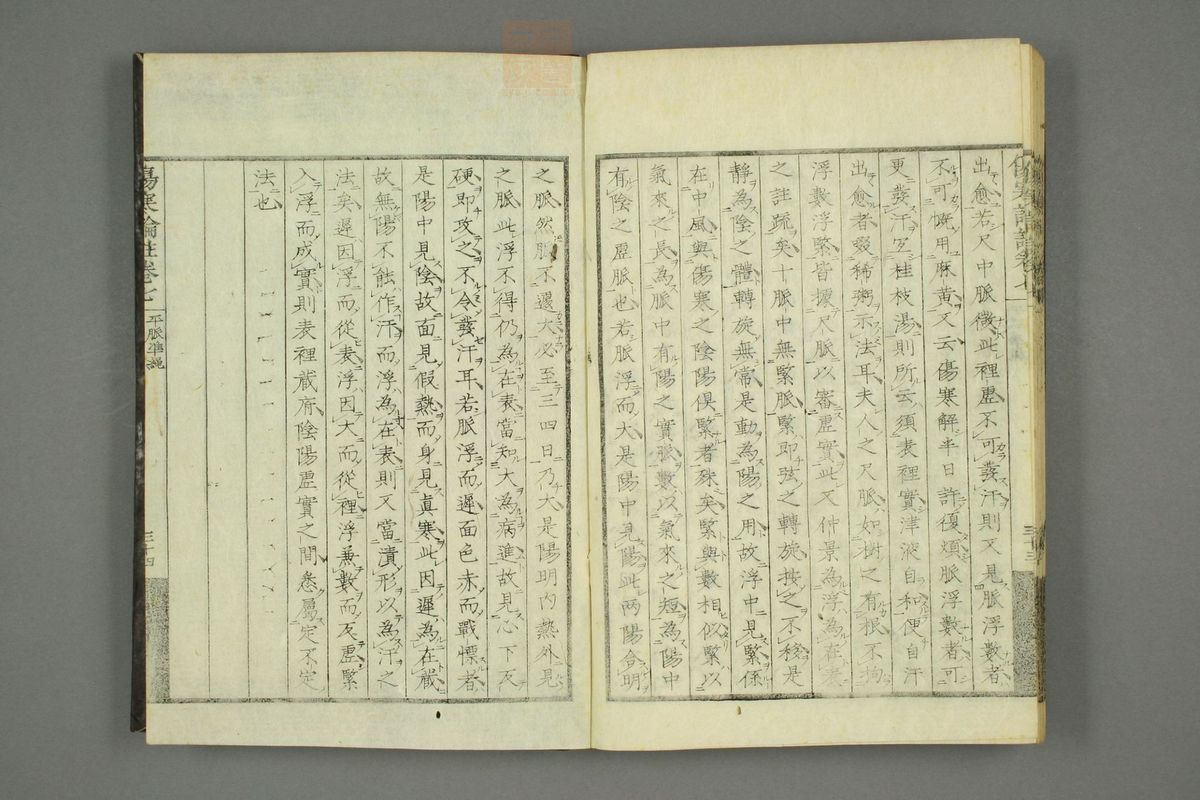 出愈若尺中脈微此裡虛不可發汗則又見脈浮數者
不可慨用麻黃又云傷寒解半日許復煩脈浮數者可
更發汗宜桂枝湯則所云須表裡實津液自和便自汗
出愈者啜稀粥示法耳夫人之尺脈如樹之有根不拘
浮數浮緊皆據尺脈以審虛實此又仲景為浮為在表
之註疏矣十脈中無緊脈緊即弦之轉旋按之不移是
靜為陰之體轉旋無常是動為陽之用故浮中見緊係
在中風與傷寒之陰陽俱緊者殊矣緊與數相似緊以
氣來之長為脈中有陽之實脈數以氣來之短為陽中
有陰之虛脈也若脈浮而大是陽中見陽此兩陽合明
之脈然脈不遽大必至三四日乃大是陽明內熱外見
之脈此浮不得仍為在表當知大為病進故見心下反
硬即攻之不令發汗耳若脈浮而遲面色赤而戰慄者
是陽中見陰故面見假熱而身見真寒此因遲為在藏
故無陽不能作汗而浮為在表則又當漬形以為汗之
法矣遲因浮而從表浮因大而從裡浮兼數而反虛緊
入浮而成實則表裡藏府陰陽虛實之間悉屬定不定
法也
傷寒論註卷七 平脈準繩 三十四